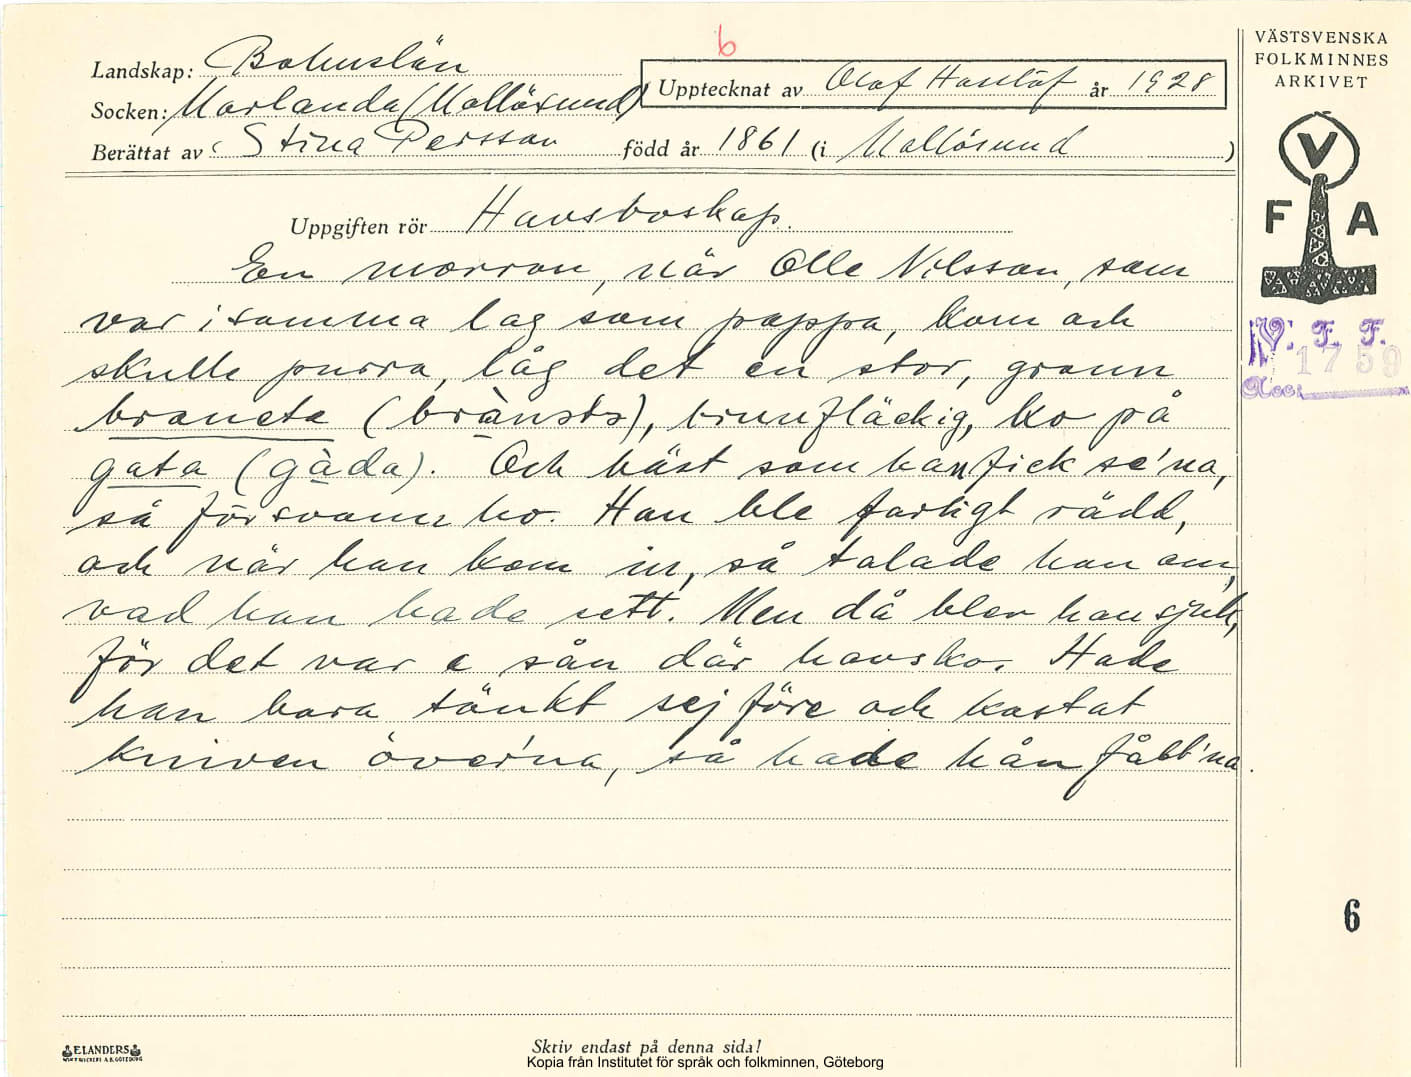 6
VÄSTSVENSKA
FOLKMINNES
ARKIVET
Landskap: Bohuslän
Upptecknat av Olof Hasslöf år 1928
Socken: Morlanda (Mollösund)
Berättat av Stina Persson född år 1861 (i Mollösund)
V
F A
Uppgiften rör Havsboskap.
V. F. F.
1759
Acc:
En morron, när Olle Nilsson, som
var i samma lag som pappa, kom och
skulle purra, låg det en stor, grann
brancta (brànsts), brunfläckig, ko på
gata (gàda). Och bäst som han fick se'na,
så försvann ho. Han ble farligt rädd,
och när han kom in, så talade han om,
vad han hade sett. Men då blev han sjuk,
för det var e sån där havsko. Hade
han bara tänkt sej före och kastat
kniven över'na, så hade hån fått'na.
6
ELANDERS
Skriv endast på denna sida!
Kopia från Institutet för språk och folkminnen, Göteborg